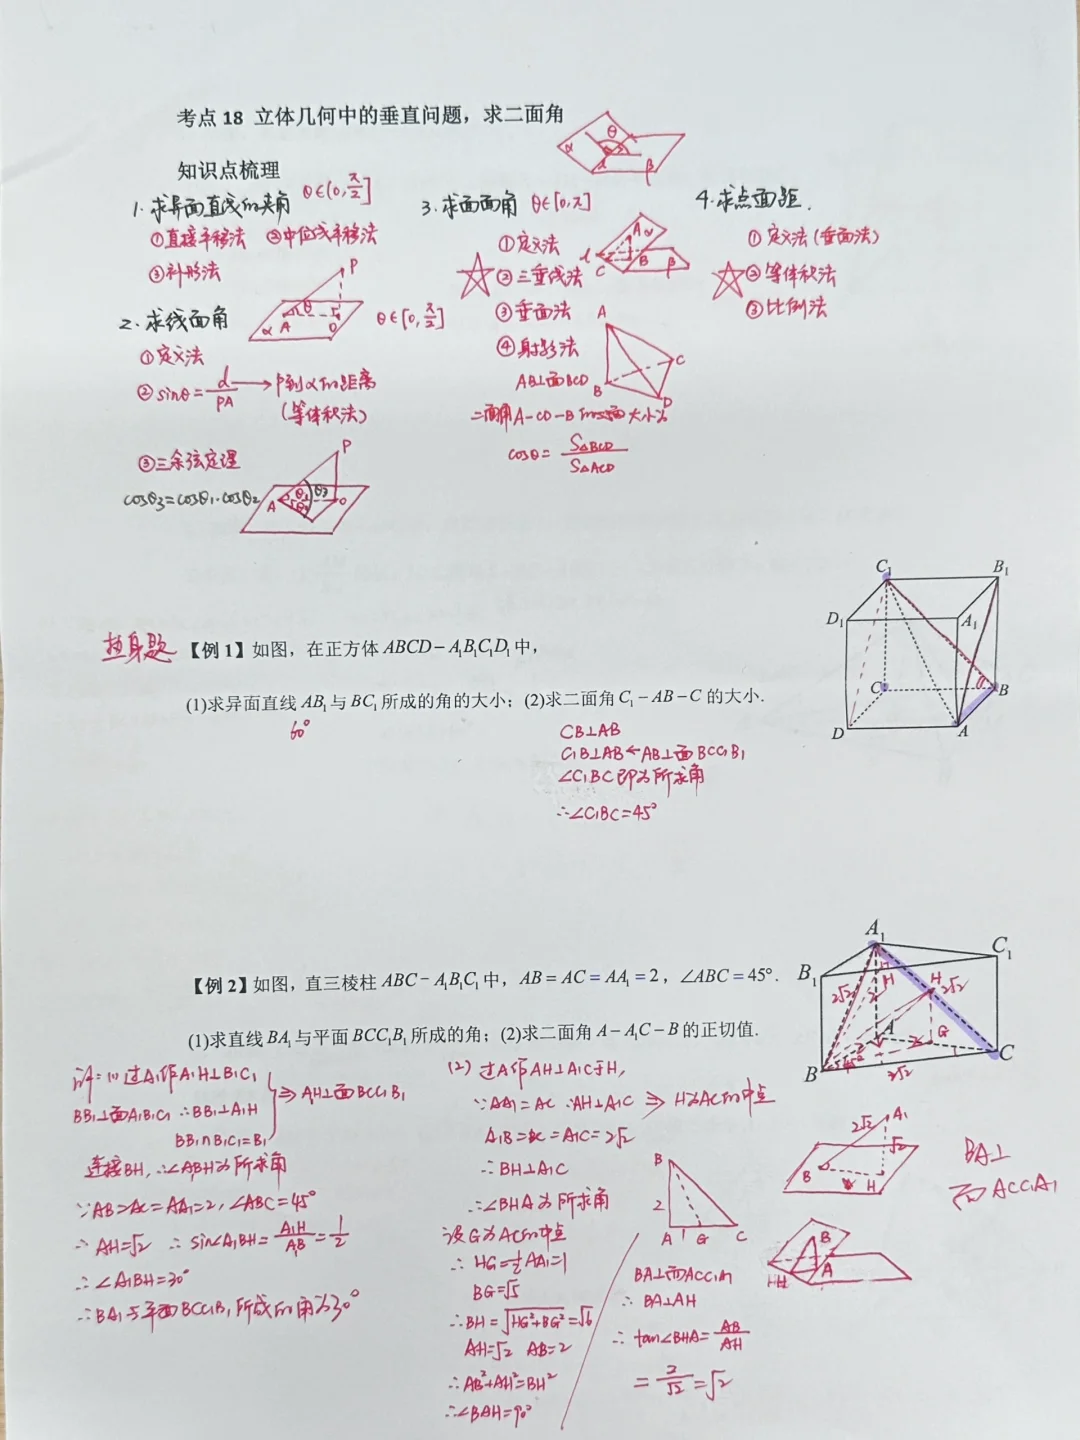 考点 18 立体几何中的垂直问题，求二面角
知识点梳理
1. 求异面直线的夹角 θ∈(0, π/2]
①直接平移法 ②中位线平移法
③补形法
2. 求线面角 θ∈[0, π/2]
①定义法
②sinθ = d/PA → P到α的距离
(等体积法)
③三余弦定理
cosθ₃=cosθ₁·cosθ₂
P
A
O
α
θ
P
A
O
θ₁
θ₂
θ₃
3. 求面面角 θ∈[0, π]
①定义法
☆②三垂线法
③垂面法
④射影法
AB⊥面BCD
二面角A-CD-B的平面大小为
cosθ = S△BCD/S△ACD
α
θ
β
l
A
α
B
β
C
A
B
C
D
4. 求点面距.
①定义法(垂面法)
☆②等体积法
③比例法
热身题 【例 1】如图，在正方体 ABCD－A₁B₁C₁D₁ 中，
(1)求异面直线 AB₁ 与 BC₁ 所成的角的大小；(2)求二面角 C₁－AB－C 的大小.
60°
CB⊥AB
C₁B⊥AB ← AB⊥面BCC₁B₁
∠C₁BC 即为所求角
∴∠C₁BC=45°
C₁
B₁
D₁
A₁
C
B
D
A
【例 2】如图，直三棱柱 ABC－A₁B₁C₁ 中，AB＝AC＝AA₁＝2，∠ABC＝45°.
(1)求直线 BA₁ 与平面 BCC₁B₁ 所成的角；(2)求二面角 A－A₁C－B 的正切值.
A₁
C₁
B₁
H
H
2√2
2√2
A
G
B
45°
C
2√2
解：(1)过A₁作A₁H⊥B₁C₁
BB₁⊥面A₁B₁C₁ ∴BB₁⊥A₁H
BB₁∩B₁C₁=B₁
⇒A₁H⊥面BCC₁B₁
连接BH,∴∠A₁BH为所求角
∵AB=AC=AA₁=2,∠ABC=45°
∴A₁H=√2 ∴sin∠A₁BH=A₁H/A₁B=1/2
∴∠A₁BH=30°
∴BA₁与平面BCC₁B₁所成的角为30°
(2)过A作AH⊥A₁C于H,
∵AA₁=AC ∴AH⊥A₁C ⇒H为A₁C的中点
A₁B=BC=A₁C=2√2
∴BH⊥A₁C
∴∠BHA为所求角
设G为AC的中点
∴HG=½AA₁=1
BG=√5
∴BH=√(HG²+BG²)=√6
AH=√2 AB=2
∴AB²+AH²=BH²
∴∠BAH=90°
B
2
A 1 G C
BA⊥面ACC₁A₁
∴BA⊥AH
∴tan∠BHA=AB/AH
=2/√2=√2
2√2
A₁
√2
B
H
BA⊥
面ACC₁A₁
B
A
H